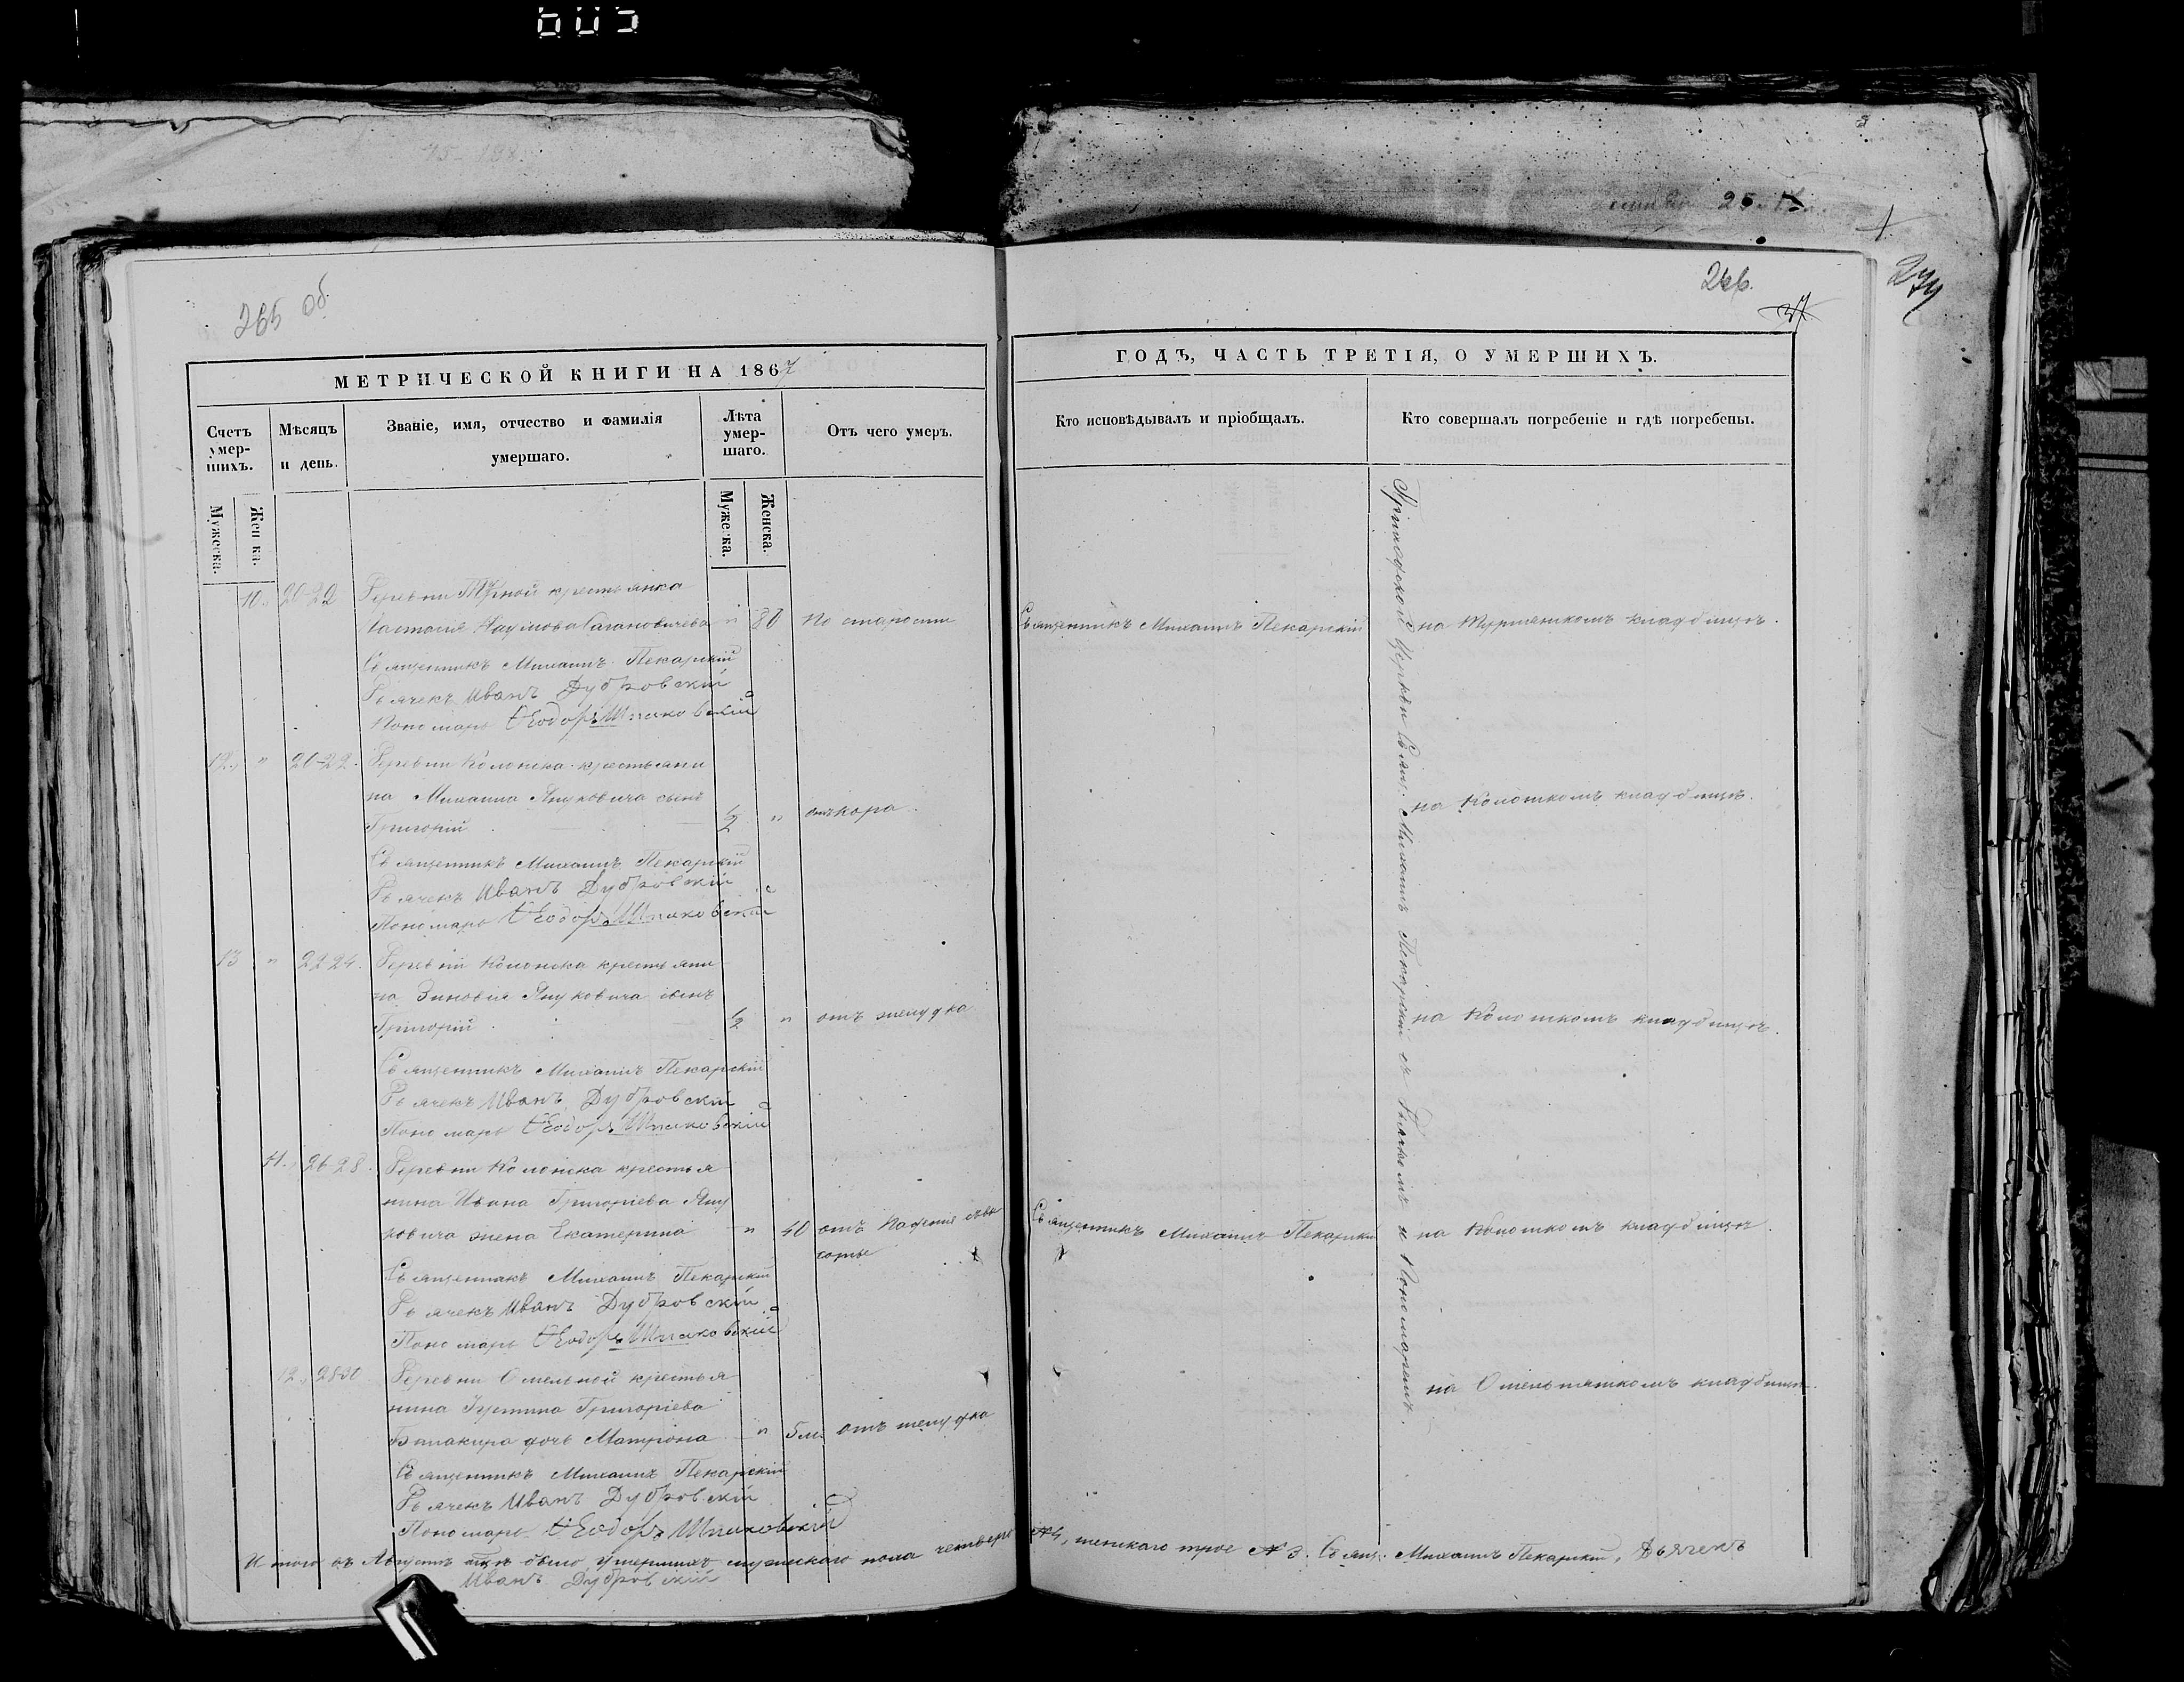 265 об.
МЕТРИЧЕСКОЙ КНИГИ НА 1867
Счетъ умер-шихъ.
Мѣсяцъ и день.
Званіе, имя, отчество и фамилія умершаго.
Лѣта умер-шаго.
Отъ чего умеръ.
Мужеска.
Женска.
Мужеска.
Женска.
10. 20-22 Деревни крестьянка
Наумова " 80 По старости
Священникъ Михаилъ Пекарскій
Дьячекъ Иванъ Дубровскій
Пономарь Ѳеодоръ Шпаковскій
12. " 20-22. Деревни Колонска крестьяни
на Михаила Януковича сынъ
Григорій 1/2 " отъ кора.
Священникъ Михаилъ Пекарскій
Дьячекъ Иванъ Дубровскій
Пономарь Ѳеодоръ Шпаковскій
13 " 22-24. Деревни Колонска крестьяни
на Зиновія Януковича сынъ
Григорій 1/2 " отъ желудка
Священникъ Михаилъ Пекарскій
Дьячекъ Иванъ Дубровскій
Пономарь Ѳеодоръ Шпаковскій
11. 26-28. Деревни Колонска крестья
нина Ивана Григоріева Яну
ковича жена Екатерина " 40 отъ
Священникъ Михаилъ Пекарскій
Дьячекъ Иванъ Дубровскій
Пономарь Ѳеодоръ Шпаковскій
12. 28-30 Деревни Омельной крестья
нина Іустина Григоріева
дочь Матрона " 5 м. отъ желудка
Священникъ Михаилъ Пекарскій
Дьячекъ Иванъ Дубровскій
Пономарь Ѳеодоръ Шпаковскій
Итого въ Августѣ мцѣ было умершихъ мужескаго пола четверо №4, женскаго трое № 3. Свящ: Михаилъ Пекарскій, Дьячекъ
Иванъ Дубровскій
266.
274
ГОДЪ, ЧАСТЬ ТРЕТІЯ, О УМЕРШИХЪ.
Кто исповѣдывалъ и пріобщалъ.
Кто совершалъ погребеніе и гдѣ погребены.
Священникъ Михаилъ Пекарскій
Церкви Свящ: Михаилъ Пекарскій съ Дьячкомъ и Пономаремъ.
на кладбищѣ.
на Колонскомъ кладбищѣ.
на Колонскомъ кладбищѣ.
Священникъ Михаилъ Пекарскій
на Колонскомъ кладбищѣ.
на Омельнянскомъ кладбищѣ.